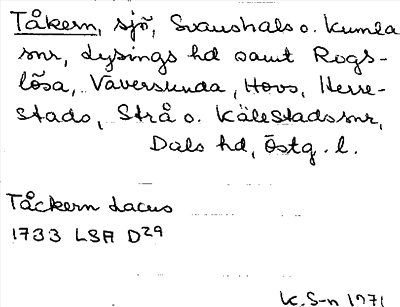 Tåkern, sjö, Svanshals o. Kumla
snr, Lysings hd samt Rogs-
lösa, Väversunda, Hovs, Herre-
stads, Strå o. Källstads snr,
Dals hd, Östg. l.
Tåckern Lacus
1733 LSA D29
K. S-n 1971